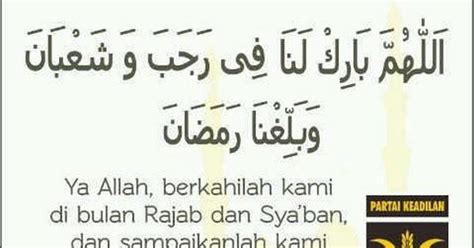 اَللّٰهُمَّ بَارِكْ لَنَا فِى رَجَبَ وَ شَعْبَانَ
وَبَلِّغْنَا رَمَضَانَ
Ya Allah, berkahilah kami
di bulan Rajab dan Sya'ban,
dan sampaikanlah kami
PARTAI KEADILAN